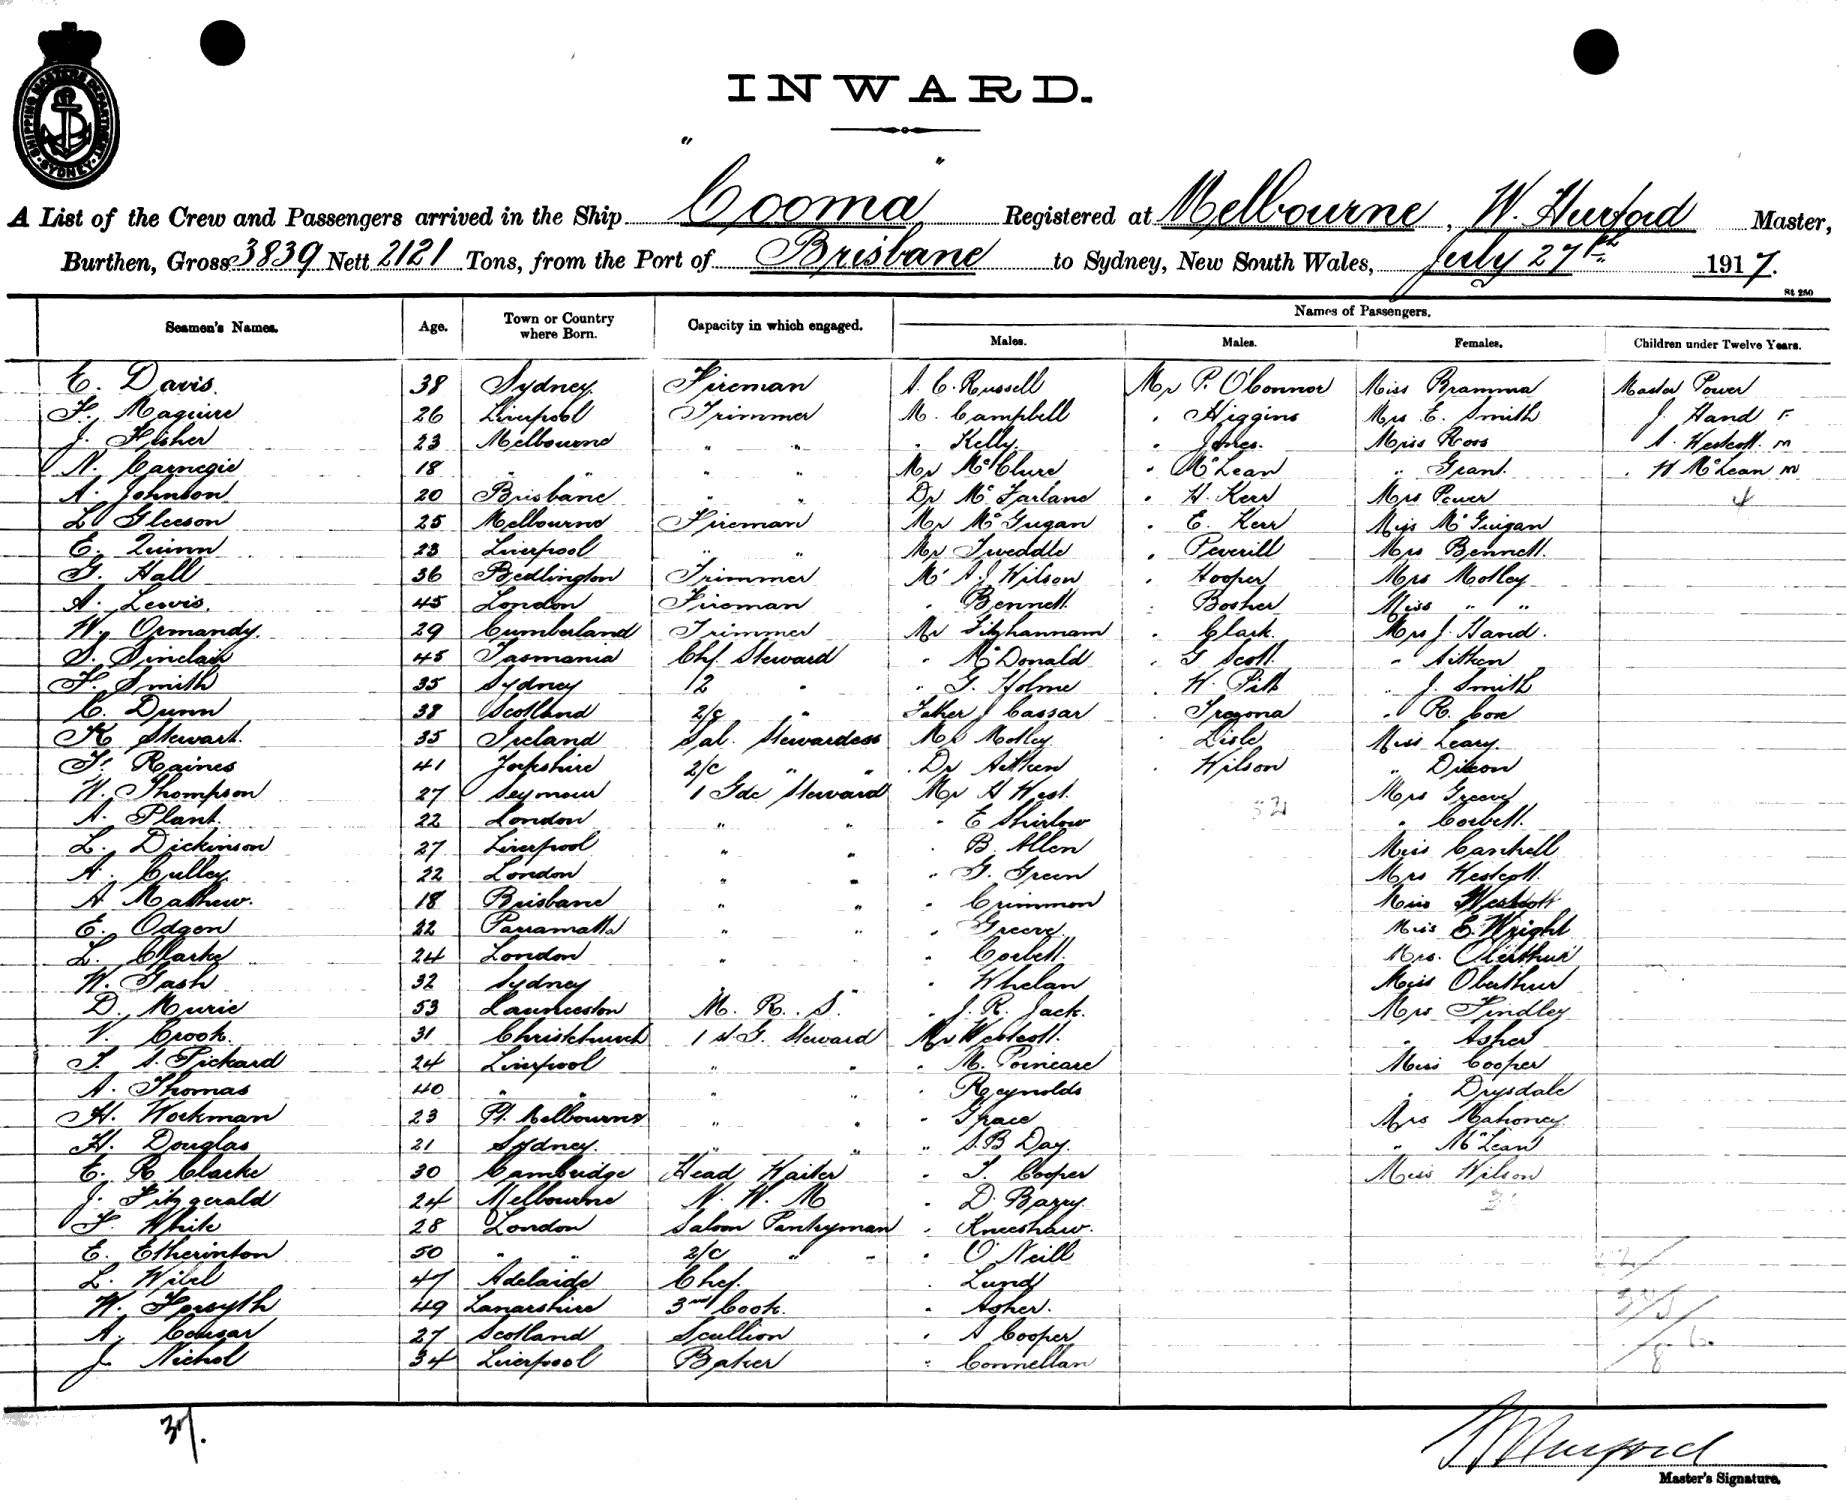 SHIPPING MASTERS DEPARTMENT
SYDNEY
INWARD.
A List of the Crew and Passengers arrived in the Ship "Cooma" Registered at Melbourne, W. Hurford Master,
Burthen, Gross 3839 Nett 2121 Tons, from the Port of Brisbane to Sydney, New South Wales, July 27th 1917.
St 250
Seamen's Names. Age. Town or Country where Born. Capacity in which engaged. Names of Passengers.
Males. Males. Females. Children under Twelve Years.
E. Davis. 38 Sydney Fireman A. C. Russell Mr P. O'Connor Miss Bramma Master Power
F. Maguire 26 Liverpool Trimmer M. Campbell " Higgins Mrs E. Smith J. Hand F
J. Fisher 23 Melbourne " " " Kelly " Jones. Miss Ross A. Westcott m
N. Carnegie 18 " " " " Mr McClure " McLean " Grant. " W McLean m
A. Johnson 20 Brisbane " " Dr McFarland " H. Kerr Mrs Power 4
L. Gleeson 25 Melbourne Fireman Mr McGugan " E. Kerr Miss McGuigan
E. Quinn 23 Liverpool " " Mr Tweddle " Peverill Mrs Bennett.
G. Hall 36 Bedlington Trimmer Mr A. J. Wilson " Hooper Mrs Motley
A. Lewis. 45 London Fireman " Bennett " Bosher Miss " "
W. Ormandy. 29 Cumberland Trimmer Mr Fitzhannam " Clark. Mrs J. Hand.
S. Sinclair 45 Tasmania Chf. Steward " McDonald " G Scott " Aitken
F. Smith 35 Sydney 12 " " G. Holme " W. Pitt " J. Smith
C. Dunn 38 Scotland 2/c " Father J Cassar " Tregona " R. Cox
K Stewart. 35 Ireland Sal. Stewardess Mr Motley " Lisle Miss Leary.
F. Raines 41 Yorkshire 2/c " " Dr Aitken " Wilson " Dixon
W. Thompson 27 Seymour 1 Gde Steward Mr H West. 52 Mrs Greeve
A. Plant. 22 London " " " E Shirlow " Corbett.
L. Dickinson 27 Liverpool " " " B. Allen Miss Cantrell
A. Culley 22 London " " " G. Green Mrs Westcott.
A Mathew. 18 Brisbane " " " Crimmon Miss Westcott
E. Odgen 22 Parramatta " " " Greeve Miss E. Wright
L. Clarke 24 London " " " Corbett. Mrs. Oberthur
W. Tash 32 Sydney " " " Whelan Miss Oberthur
D. Murie 53 Launceston M. R. S. " J. R. Jack. Mrs Findley
V. Crook. 31 Christchurch 1 st G. Steward Mr Westcott. " Asher
T. S. Pickard 24 Liverpool " " " M. Poincare Miss Cooper
A. Thomas 40 " " " Reynolds " Drysdale
H. Workman 23 Pt. Melbourne " " " Grace Mrs Mahoney
H. Douglas 21 Sydney. " " " S. B Day. " McLean
C. R. Clarke 30 Cambridge Head Waiter " T. Cooper Miss Wilson
J. Fitzgerald 24 Melbourne N. W. M " D. Barry.
F. White 28 London Saloon Pantryman " Kneeshaw.
E. Etherinton 50 " " 2/c " " " O'Neill
L. Wibel 47 Adelaide Chef. " Lund
W. Forsyth 49 Lanarshire 3rd Cook. " Asher.
A. Cousar 27 Scotland Scullion " A Cooper
J. Nichol 34 Liverpool Baker " Connellan
37.
W Hurford
Master's Signature.